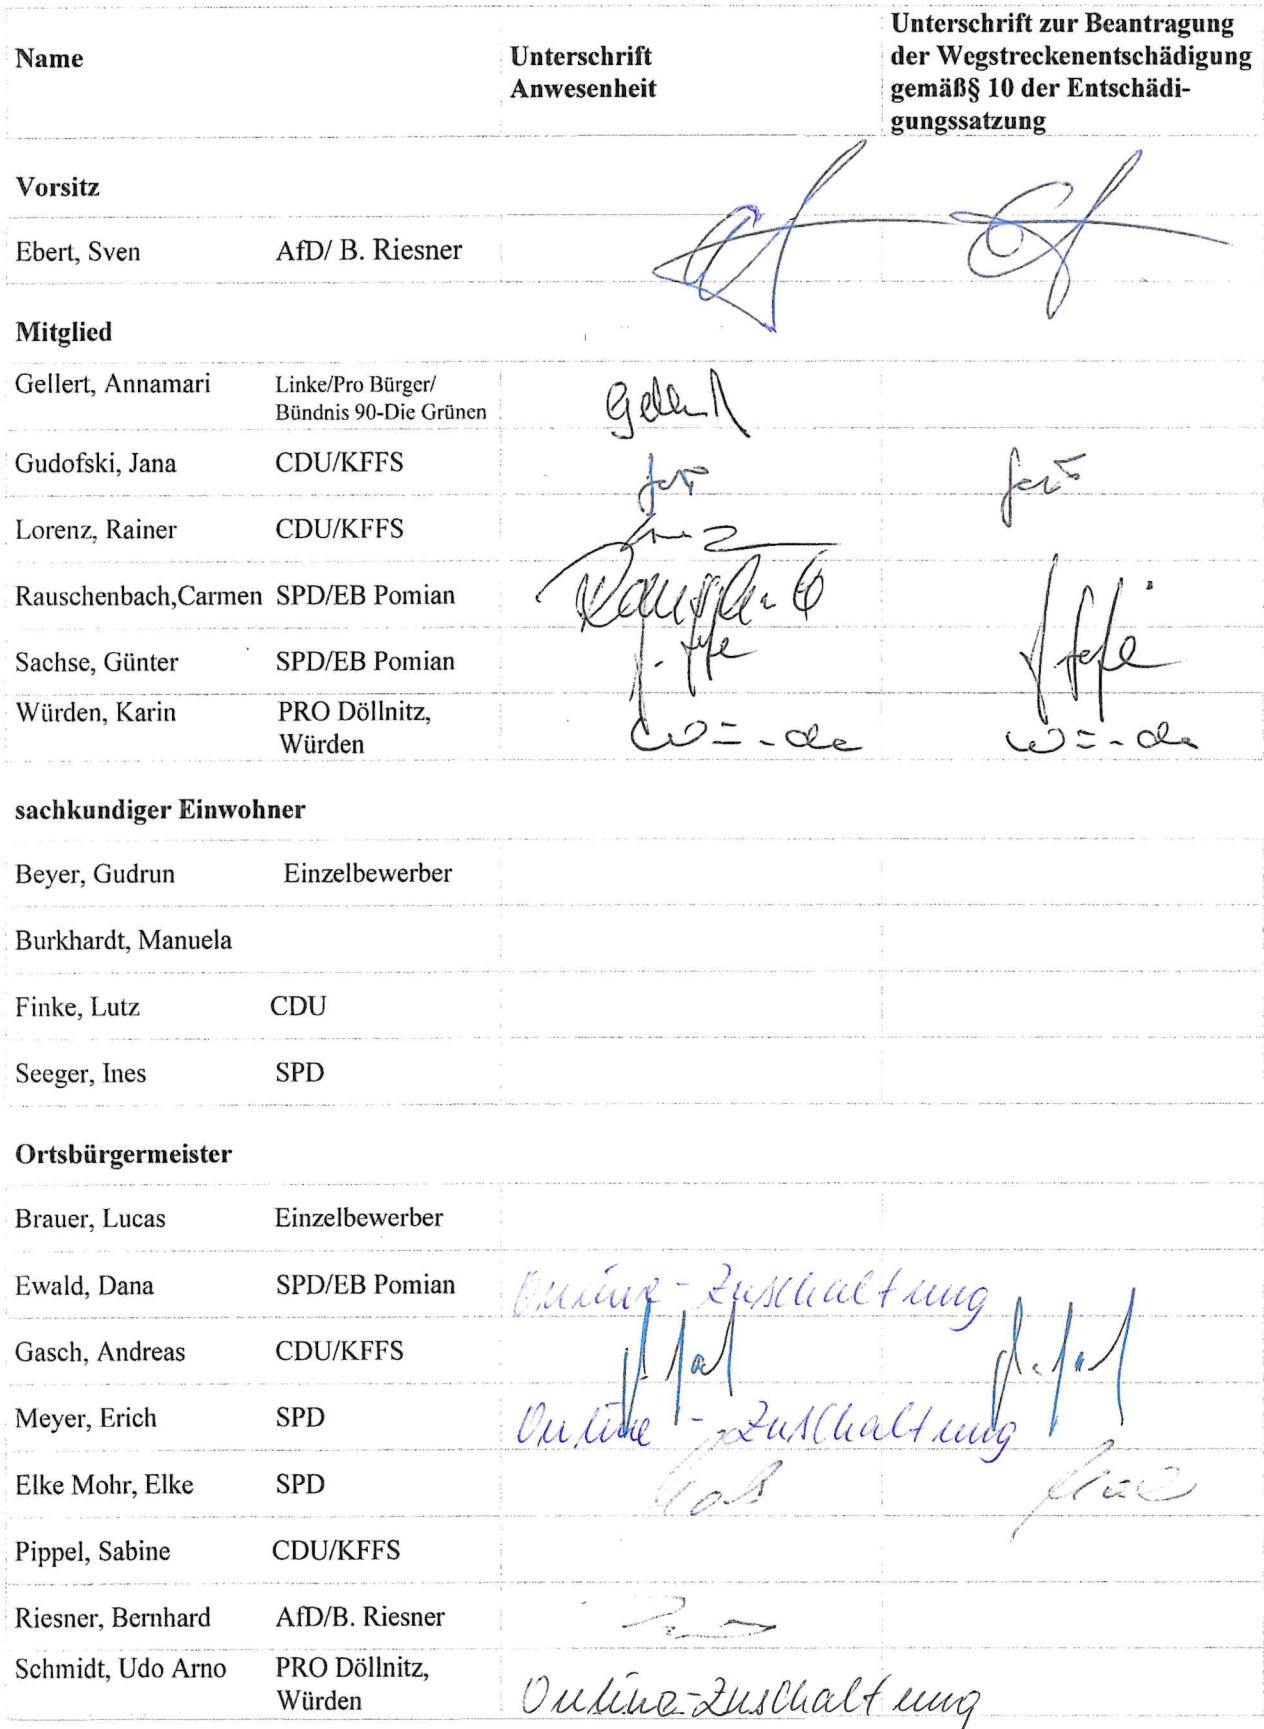 Name
Unterschrift
Anwesenheit
Unterschrift zur Beantragung
der Wegstreckenentschädigung
gemäß§ 10 der Entschädi-
gungssatzung
Vorsitz
Ebert, Sven AfD/ B. Riesner
Mitglied
Gellert, Annamari Linke/Pro Bürger/
Bündnis 90-Die Grünen
Gellert
Gudofski, Jana CDU/KFFS
Lorenz, Rainer CDU/KFFS
Rauschenbach,Carmen SPD/EB Pomian
Sachse, Günter SPD/EB Pomian
Würden, Karin PRO Döllnitz,
Würden
sachkundiger Einwohner
Beyer, Gudrun Einzelbewerber
Burkhardt, Manuela
Finke, Lutz CDU
Seeger, Ines SPD
Ortsbürgermeister
Brauer, Lucas Einzelbewerber
Ewald, Dana SPD/EB Pomian Online-Zuschaltung
Gasch, Andreas CDU/KFFS
Meyer, Erich SPD Online-Zuschaltung
Elke Mohr, Elke SPD
Pippel, Sabine CDU/KFFS
Riesner, Bernhard AfD/B. Riesner
Schmidt, Udo Arno PRO Döllnitz,
Würden
Online-Zuschaltung